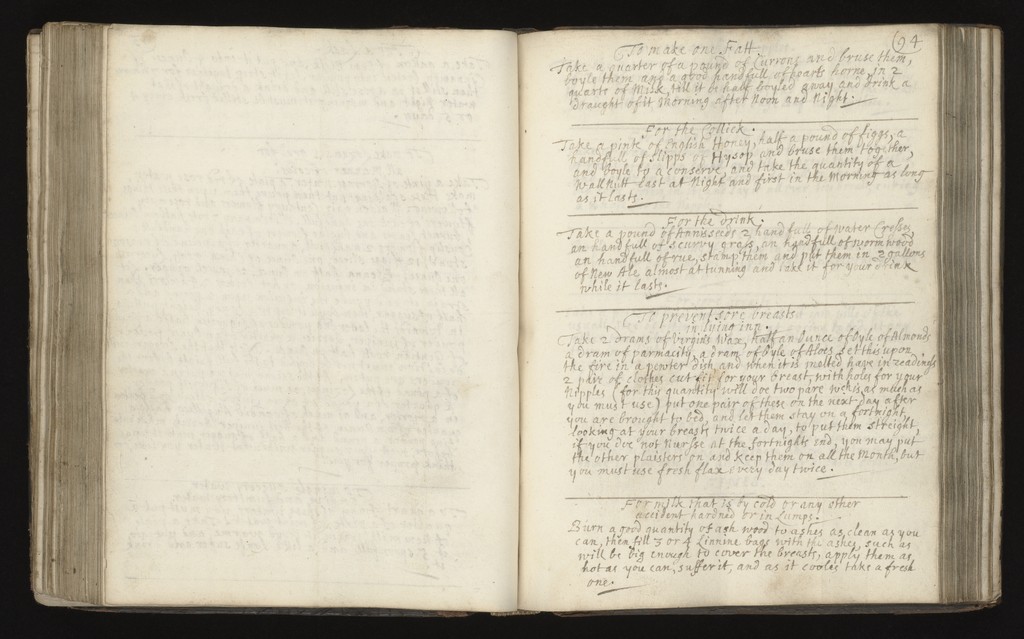 94
To make one Fatt
Take a quarter of a pound of Currons and bruse them,
boyle them and a good handfull of hearts horne, in 2
quarts of Milk, till it be half boyled away and drink a
draught of it Morning after Noon and Night.
For the Collick.
Take a pint of English Honey, half a pound of figgs, a
handfull of slipps of Hysop and bruse them together,
and boyle to a conserve, and take the quantity of a
Wallnutt Last at Night and first in the Morning as long
as it lasts.
For the drink.
Take a pound of Annisseeds 2 handfulls of Water Cresses,
an handfull of scurvy grass, an handfull of wormwood
an handfull of rue, stamp them and put them in 2 gallons
of New Ale almost at tunning and take it for your drink
while it lasts.
To prevent sore breasts
in lying inn.
Take 2 drams of Virgins Wax, half an ounce of Oyle of Almonds
a dram of parmacity, a dram of Oyle of Aloes, set this upon
the fire in a pewter dish, and when it is melted have in readiness
2 pair of clothes cut fit for your breast, with holes for your
Nipples (for this quantity will doe two pare wch is as much as
you must use) put one pair of these on the next day after
you are brought to bed, and let them stay on a fortnight,
looking at your breasts twice a day, to put them streight,
if you doe not Nursse at the fortnights end, you may put
the other plaisters on and keep them on all the Month, but
you must use fresh flax every day twice.
For milk that is by cold or any other
accident hardned or in Lumps.
Burn a good quantity of ash wood to ashes as clean as you
can, then fill 3 or 4 Linnine bags with the ashes, such as
will be big enough to cover the breasts, apply them as
hot as you can suffer it, and as it cooles take a fresh
one.